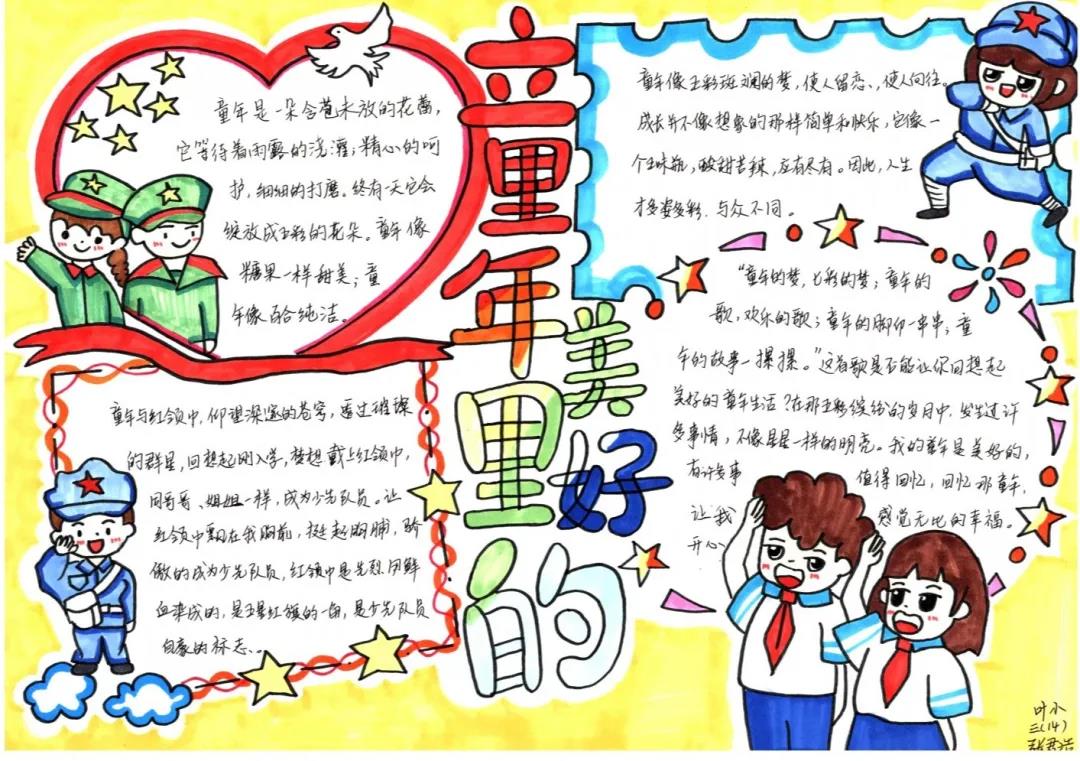 童年里
美好的
童年是一朵含苞未放的花蕾，
它等待着雨露的浇灌；精心的呵
护，细细的打磨。终有一天它会
绽放成五彩的花朵。童年像
糖果一样甜美；童
年像百合纯洁。
童年像五彩斑斓的梦，使人留恋，使人向往。
成长并不像想象的那样简单和快乐，它像一
个五味瓶，酸甜苦辣，应有尽有。因此，人生
才多姿多彩．与众不同。
童年与红领巾，仰望深邃的苍穹，透过璀璨
的群星，回想起刚入学，梦想戴上红领巾，
同哥哥、姐姐一样，成为少先队员。让
红领巾飘在我胸前，挺起胸脯，骄
傲的成为少先队员，红领巾是先烈用鲜
血染成的，是五星红旗的一角，是少先队员
自豪的标志、。
“童年的梦，七彩的梦；童年的
歌，欢乐的歌；童年的脚印一串串；童
年的故事一摞摞。”这首歌是否能让你回想起
美好的童年生活？在那五彩缤纷的岁月中，发生过许
多事情，不像星星一样的明亮。我的童年是美好的，
有许多事 值得回忆，回忆那童年，
让我 感觉无比的幸福。
开心
叶小
三（14）